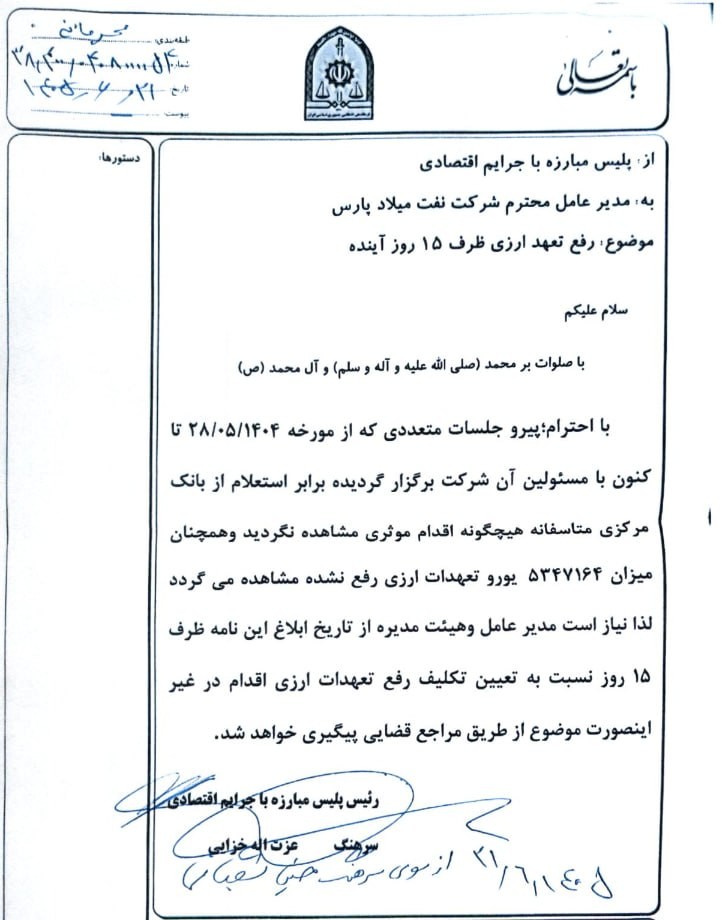 باسمه تعالی
طبقه‌بندی: محرمانه
شماره:
تاریخ: ۱۴۰۵/۶/۳۱
پیوست:
دستورها:
از: پلیس مبارزه با جرایم اقتصادی
به: مدیر عامل محترم شرکت نفت میلاد پارس
موضوع: رفع تعهد ارزی ظرف ۱۵ روز آینده
سلام علیکم
با صلوات بر محمد (صلی الله علیه و آله و سلم) و آل محمد (ص)
با احترام؛پیرو جلسات متعددی که از مورخه ۲۸/۰۵/۱۴۰۴ تا
کنون با مسئولین آن شرکت برگزار گردیده برابر استعلام از بانک
مرکزی متاسفانه هیچگونه اقدام موثری مشاهده نگردید وهمچنان
میزان ۵۳۴۷۱۶۴ یورو تعهدات ارزی رفع نشده مشاهده می گردد
لذا نیاز است مدیر عامل وهیئت مدیره از تاریخ ابلاغ این نامه ظرف
۱۵ روز نسبت به تعیین تکلیف رفع تعهدات ارزی اقدام در غیر
اینصورت موضوع از طریق مراجع قضایی پیگیری خواهد شد.
رئیس پلیس مبارزه با جرایم اقتصادی
سرهنگ عزت اله خزایی
از سوی سرهنگ ۳۱/۶/۱۴۰۵